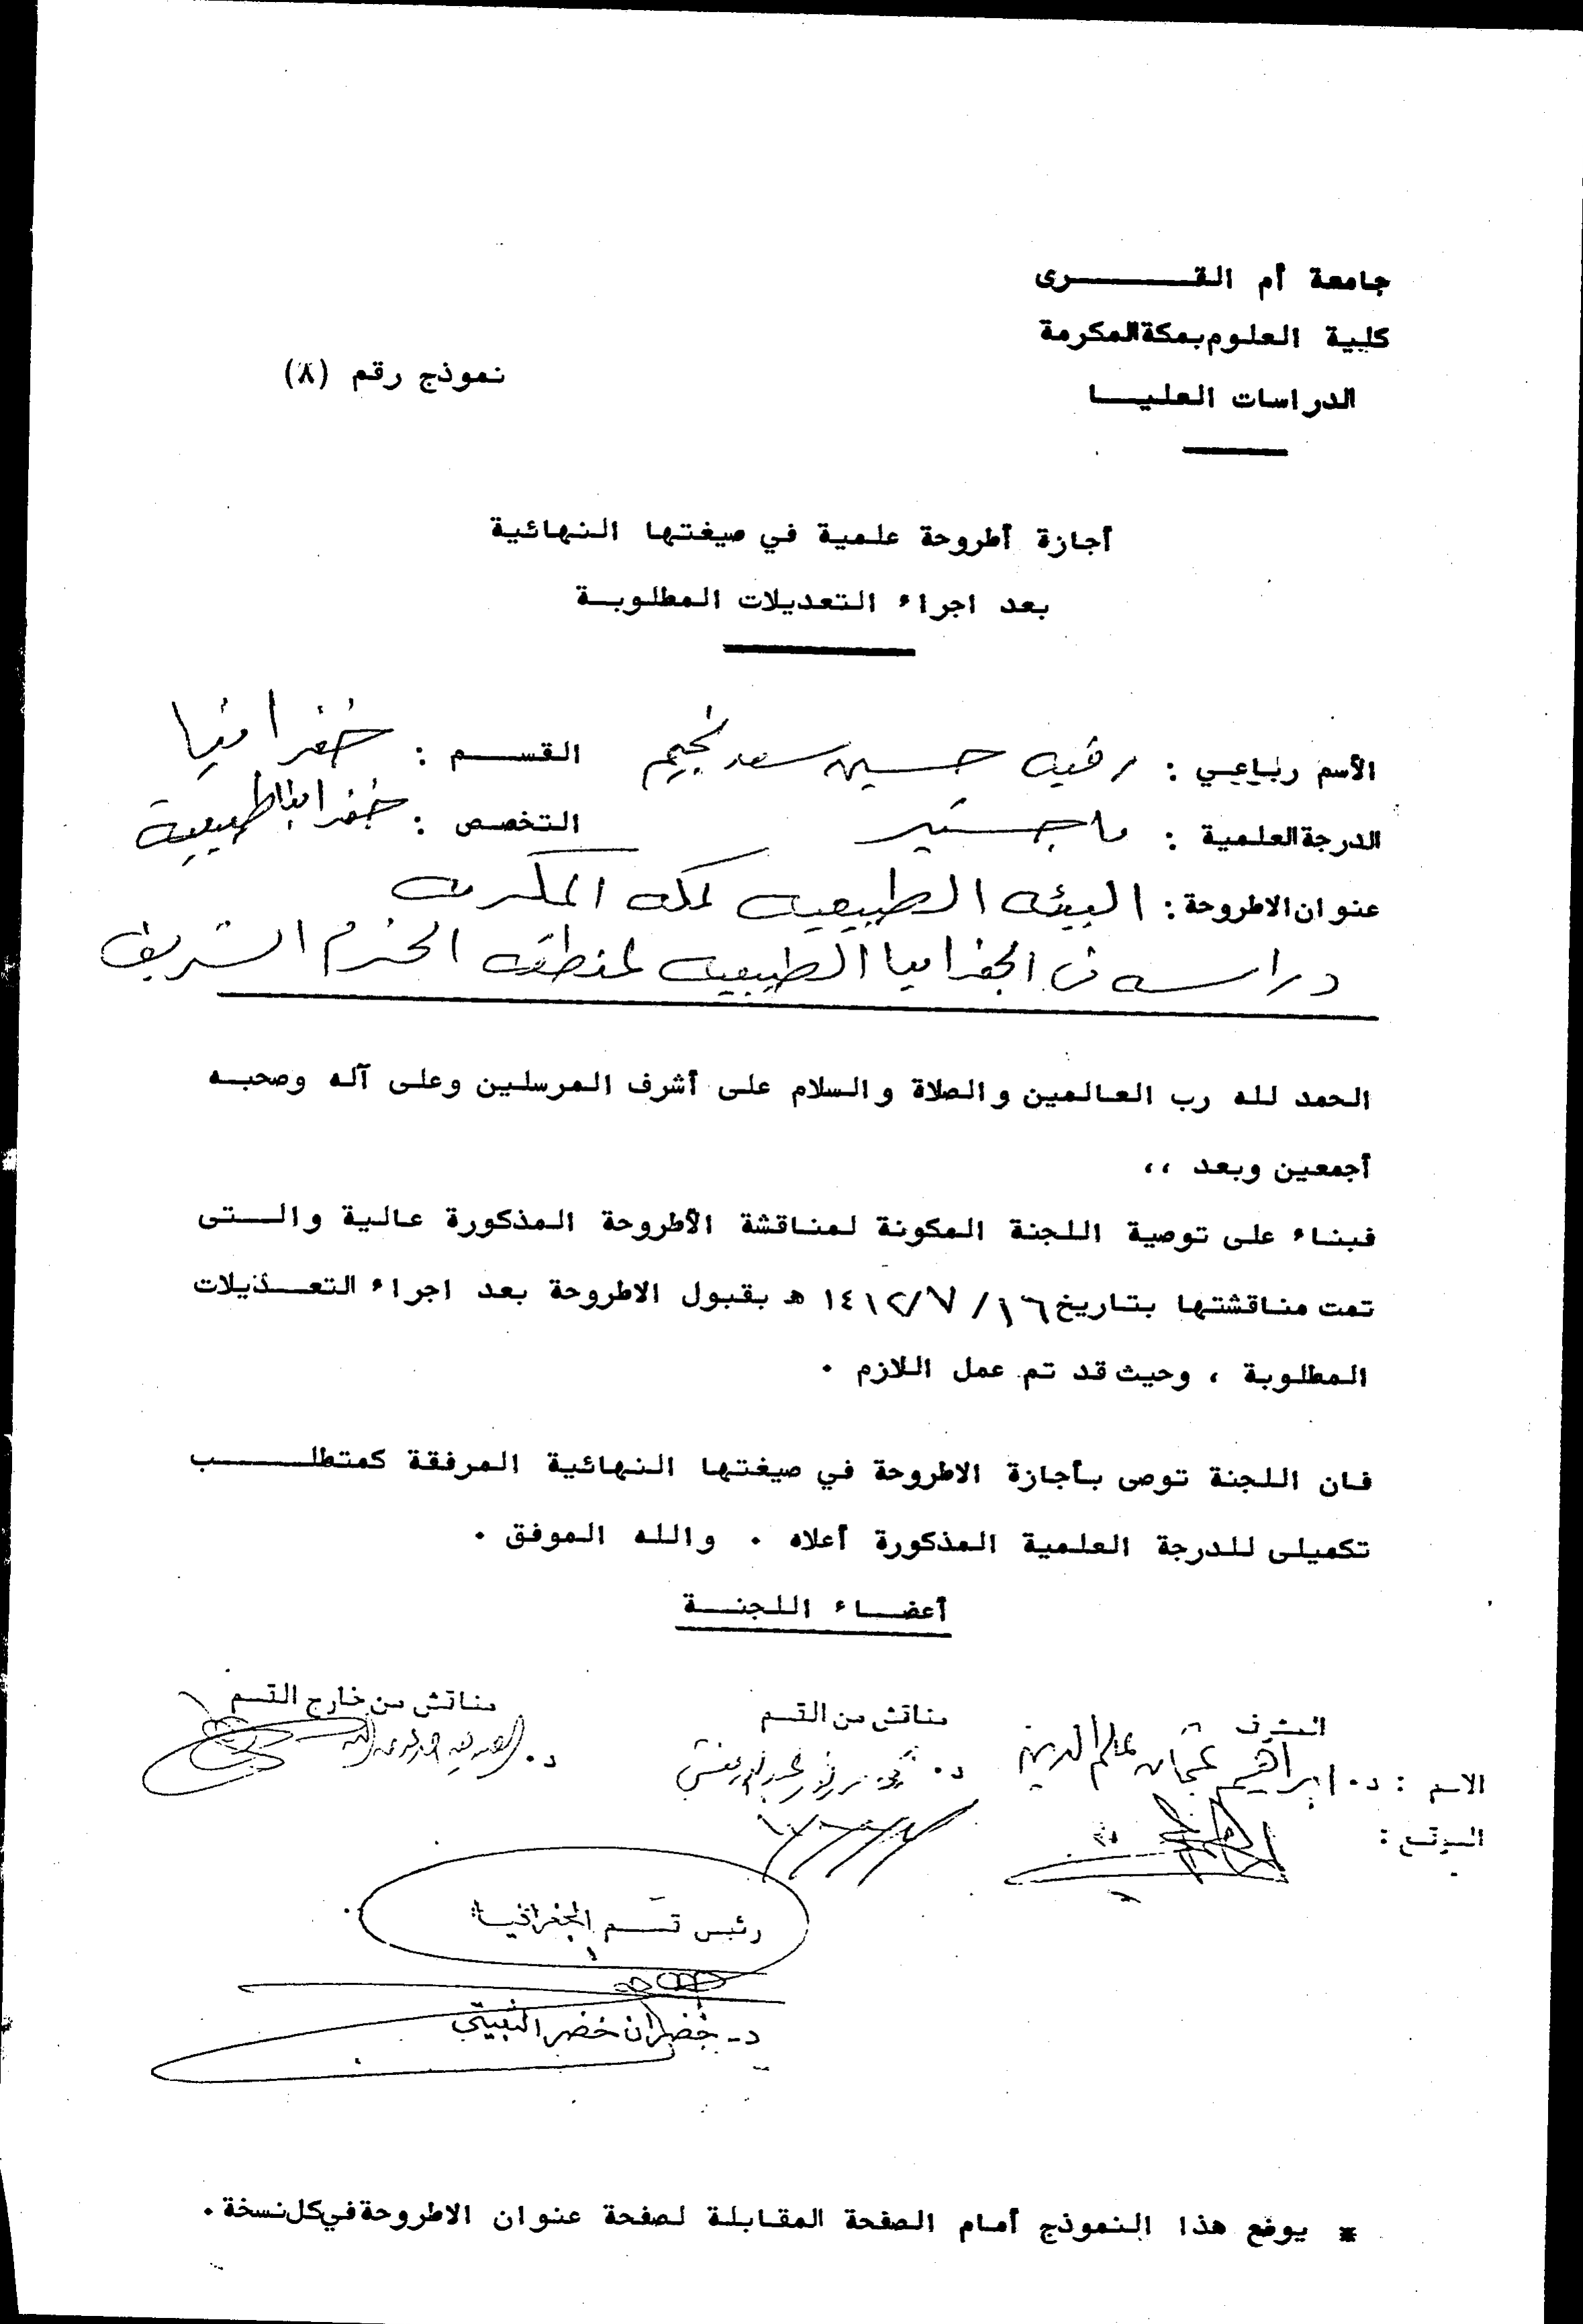 جامعة أم القرى
كلية العلوم بمكة المكرمة
الدراسات العليا
نموذج رقم (٨)
أجازة أطروحة علمية في صيغتها النهائية
بعد اجراء التعديلات المطلوبة
الأسم رباعي : رقيه حسين سعد نجيم القسم : جغرافيا
الدرجة العلمية : ماجستير التخصص : جغرافيا طبيعية
عنوان الاطروحة : البيئه الطبيعيه لمكه المكرمه
دراسه في الجغرافيا الطبيعيه لمنطقه الحرم الشريف
الحمد لله رب العالمين والصلاة والسلام على أشرف المرسلين وعلى آله وصحبه
أجمعين وبعد ،،
فبناء على توصية اللجنة المكونة لمناقشة الأطروحة المذكورة عالية والتى
تمت مناقشتها بتاريخ ١٦ / ٧ / ١٤١٢ هـ بقبول الاطروحة بعد اجراء التعديلات
المطلوبة ، وحيث قد تم عمل اللازم .
فان اللجنة توصى بأجازة الاطروحة في صيغتها النهائية المرفقة كمتطلب
تكميلى للدرجة العلمية المذكورة أعلاه . والله الموفق .
أعضاء اللجنة
المشرف مناقش من القسم مناقش من خارج القسم
الاسم : د. ابراهيم عثمان علم الدين د. د.
التوقيع :
رئيس قسم الجغرافيا
د- خضران خضر الثبيتي
* يوقع هذا النموذج أمام الصفحة المقابلة لصفحة عنوان الاطروحة في كل نسخة .